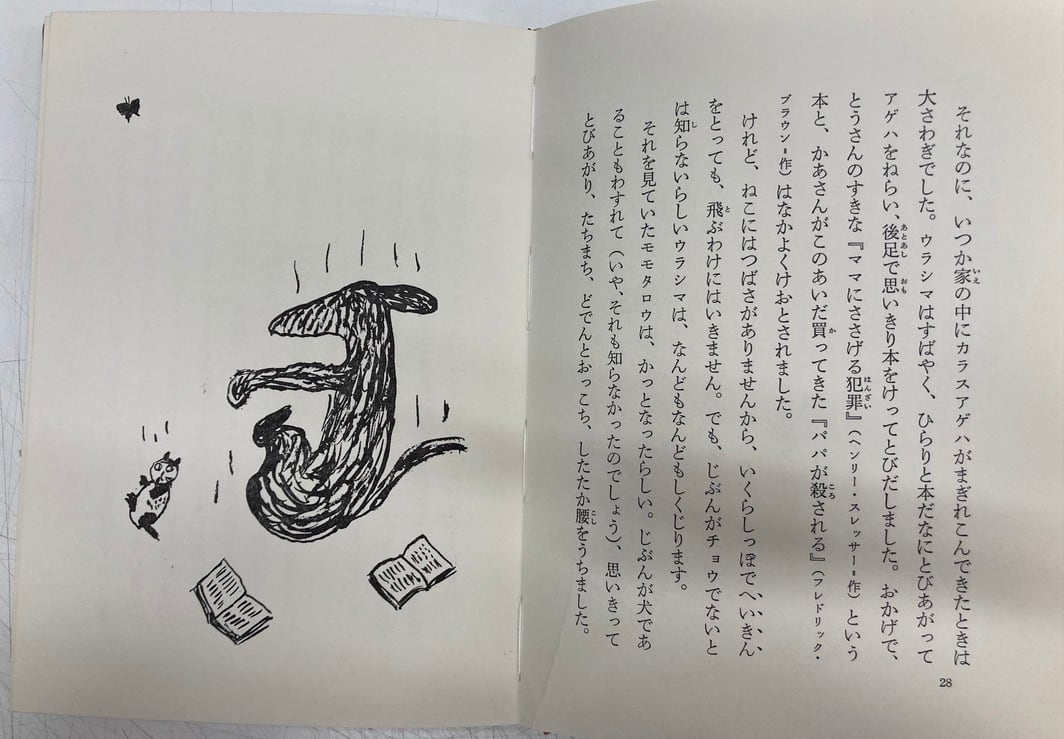 それなのに、いつか家の中にカラスアゲハがまぎれこんできたときは
大さわぎでした。ウラシマはすばやく、ひらりと本だなにとびあがって
アゲハをねらい、後足で思いきり本をけってとびだしました。おかげで、
とうさんのすきな『ママにささげる犯罪』（ヘンリー・スレッサー＝作）という
本と、かあさんがこのあいだ買ってきた『パパが殺される』（フレドリック・
ブラウン＝作）はなかよくけおとされました。
けれど、ねこにはつばさがありませんから、いくらしっぽでへいきん
をとっても、飛ぶわけにはいきません。でも、じぶんがチョウでないと
は知らないらしいウラシマは、なんどもなんどもしくじります。
それを見ていたモモタロウは、かっとなったらしい。じぶんが犬であ
ることもわすれて（いや、それも知らなかったのでしょう）、思いきって
とびあがり、たちまち、どでんとおっこち、したたか腰をうちました。
28